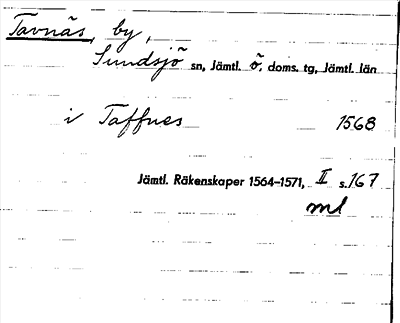 Tavnäs, by,
Sundsjö sn, Jämtl. ö. doms. tg, Jämtl. län
i Taffnes 1568
Jämtl. Räkenskaper 1564–1571, II s. 167
ml